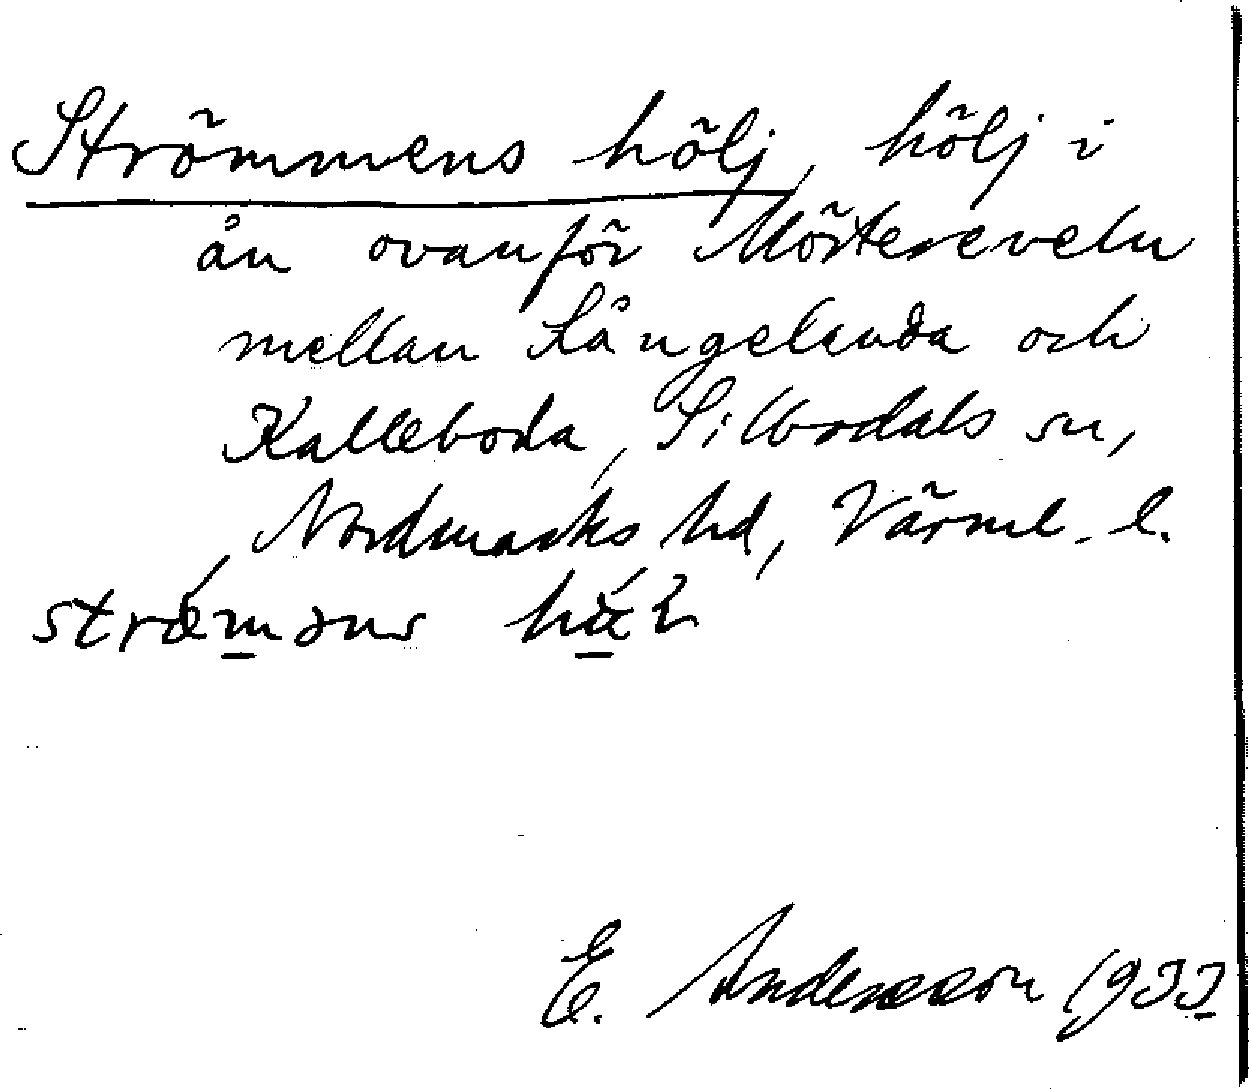 Strömmens hölj, hölj i
ån ovanför Mörterevelu
mellan Långelanda och
Kalleboda, Silbodals sn,
Nordmarks hd, Värml. l.
E. Andersson 1933